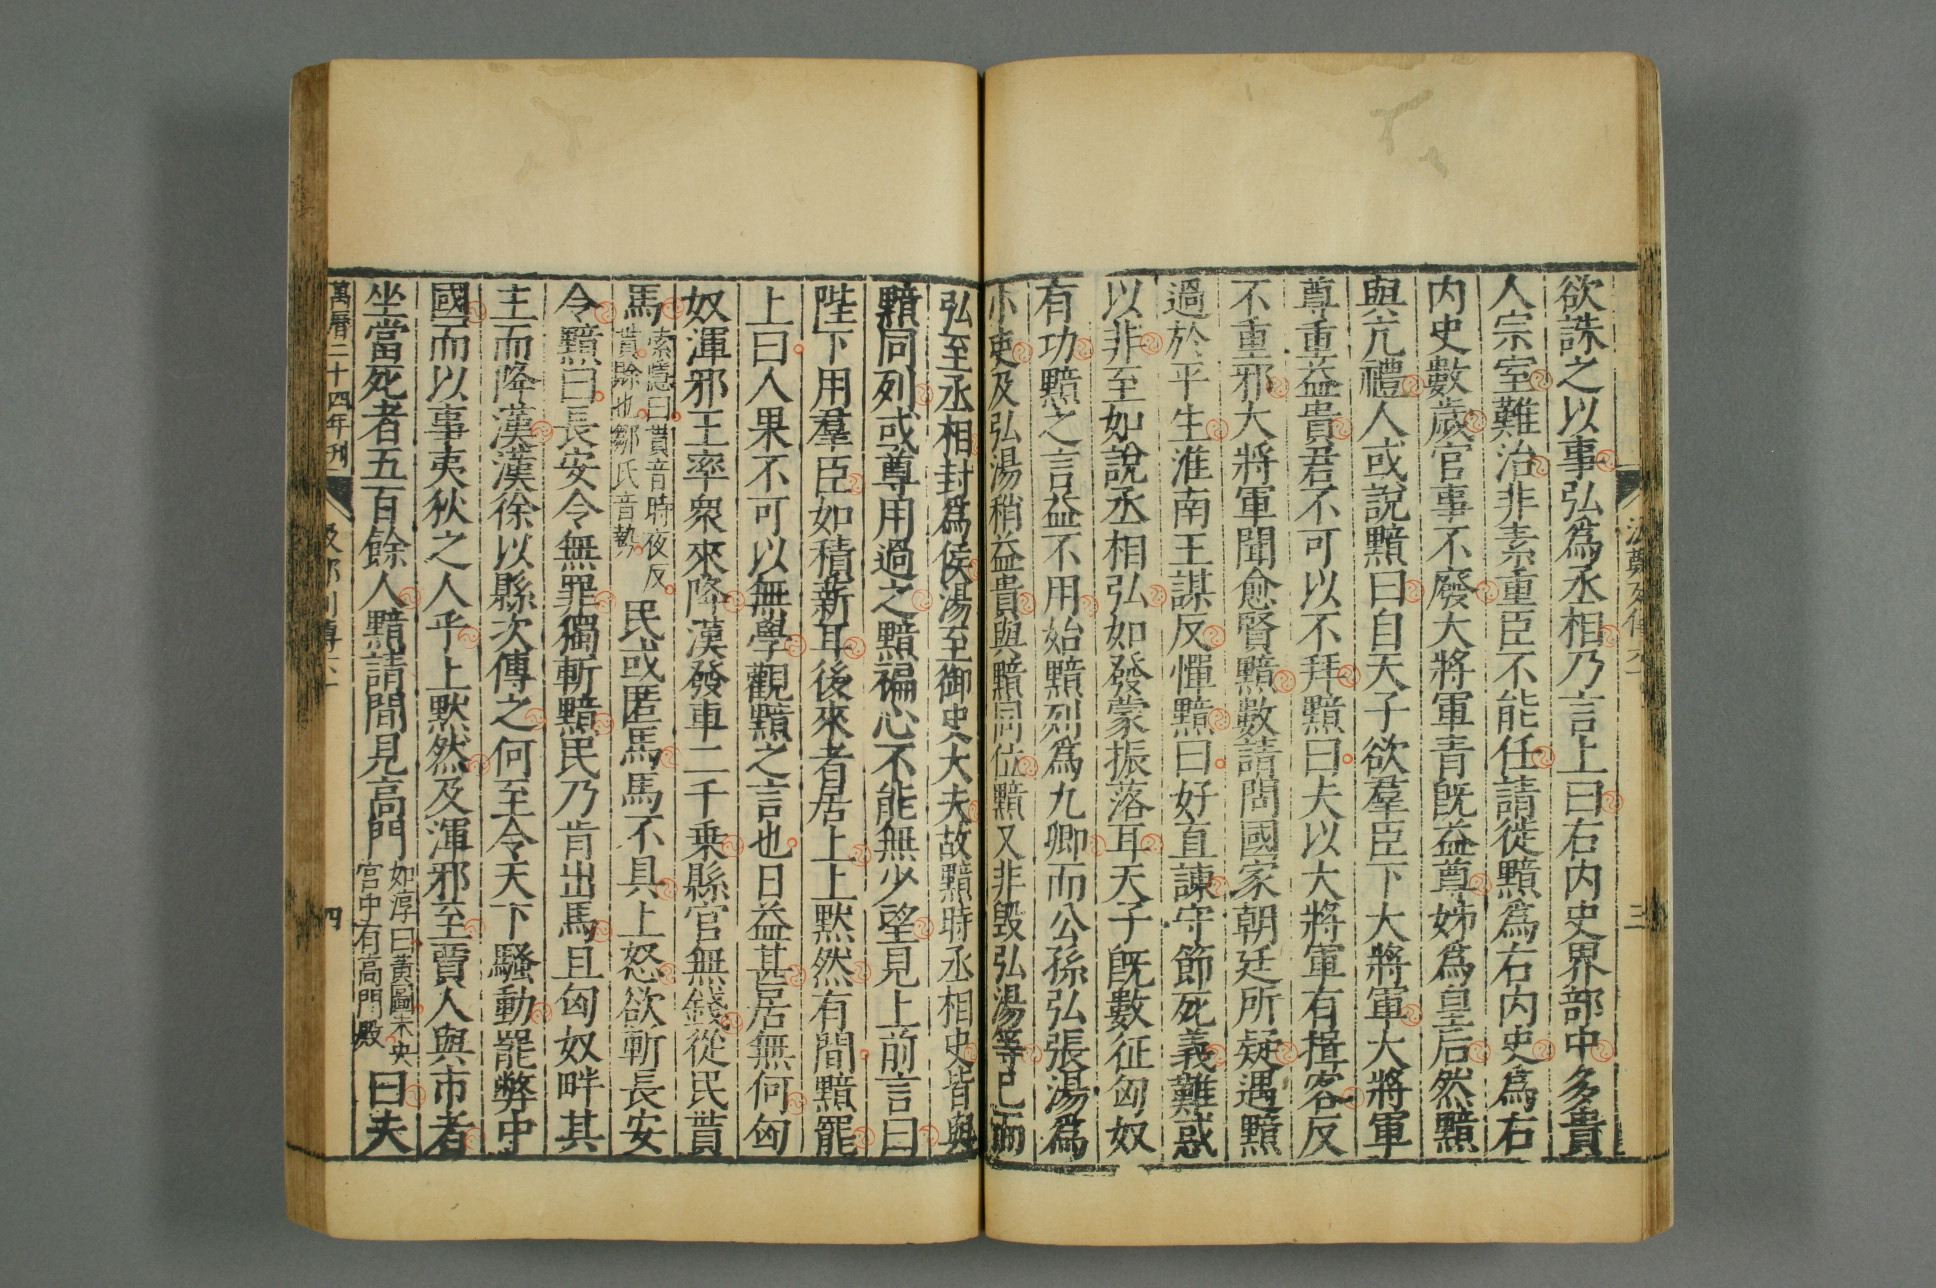 欲誅之以事弘爲丞相乃言上曰右内史界部中多貴
人宗室難治非素重臣不能任請徙黯爲右内史爲右
内史數歲官事不廢大將軍青旣益尊姊爲皇后然黯
與亢禮人或說黯曰自天子欲羣臣下大將軍大將軍
尊重益貴君不可以不拜黯曰夫以大將軍有揖客反
不重邪大將軍聞愈賢黯數請問國家朝廷所疑遇黯
過於平生淮南王謀反憚黯曰好直諫守節死義難惑
以非至如說丞相弘如發蒙振落耳天子旣數征匈奴
有功黯之言益不用始黯列爲九卿而公孫弘張湯爲
小吏及弘湯稍益貴與黯同位黯又非毀弘湯等已而
弘至丞相封爲侯湯至御史大夫故黯時丞相史皆與
黯同列或尊用過之黯褊心不能無少望見上前言曰
陛下用羣臣如積薪耳後來者居上上默然有間黯罷
上曰人果不可以無學觀黯之言也日益甚居無何匈
奴渾邪王率衆來降漢發車二千乘縣官無錢從民貰
馬索隱曰貰音時夜反貰賒也鄒氏音勢民或匿馬馬不具上怒欲斬長安
令黯曰長安令無罪獨斬黯民乃肯出馬且匈奴畔其
主而降漢漢徐以縣次傳之何至令天下騷動罷弊中
國而以事夷狄之人乎上默然及渾邪至賈人與市者
坐當死者五百餘人黯請間見高門如淳曰黃圖未央宮中有高門殿曰夫
萬曆二十四年刊
四
三